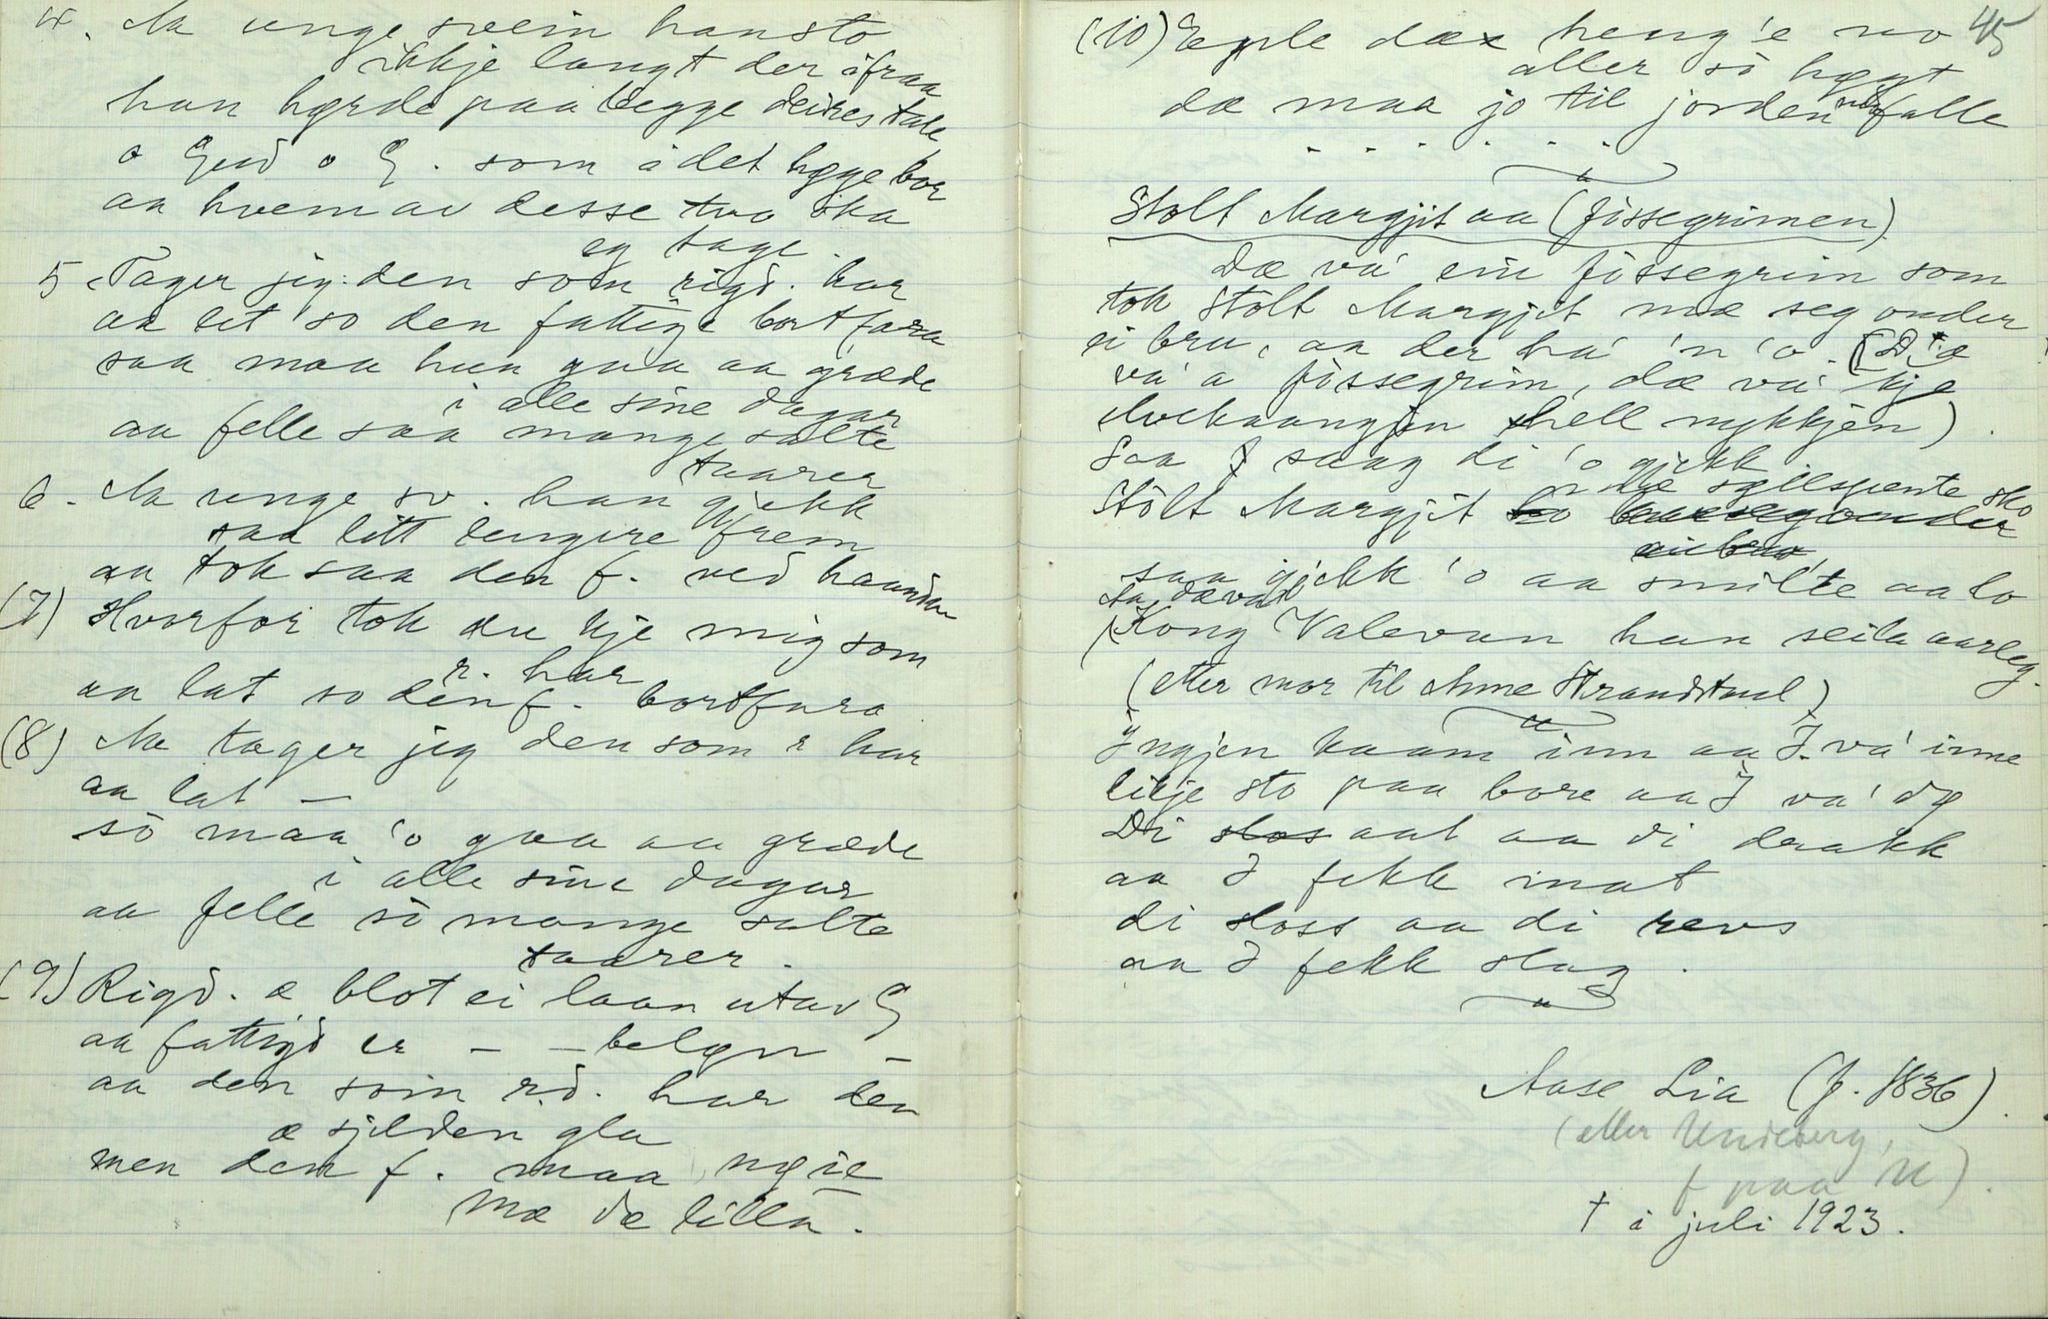 4. Aa unge svein han sto
ikkje langt der ifraa
han hørde paa begge deires tale
o Gud o G. som i det høge bor
aa hvem av desse tvo ska
eg tage.
5. Tager jeg den som rigd. har
aa let so den fattige bortfara
saa maa hun gaa aa græde
i alle sine dagar
aa felle saa mange salte
taarer
6. Aa unge sv. han gjekk
saa litt lengere frem
aa tok saa den f. ved haanden
(7) Hvorfor tok du kje mig som
r. har
aa lat so den f. bortfara
(8) Aa tager jeg den som r har
aa lat —
so maa 'o gaa aa græde
i alle sine dagar
aa felle so mange salte
taarer.
(9) Rigd. æ blot ei laan utav G
aa fattigd er — — bolgn —
aa den som r.d. har den
æ sjelden gla
men den f. maa nøie
mæ dæ litla.
(10) Eple dæ heng'e no 45
aller so høgt
dæ maa jo til jorden nedfalle
. . . . . .
Stolt Margjit aa (fossegrimen)
Dæ va' ein fossegrim som
tok Stolt Margjit mæ seg onder
ei bru, aa der ha' 'n 'o. (Dæ
va' a fossegrim, dæ va' kje
hell nykkjen).
Saa saag di 'o gjekk
i dæ sylspente sko
Stolt Margjit so
saa gjekk 'o aa smilte aa lo
Aa dæ va
(Kong Valevan han seila aarleg.
(etter mor til Anne Strandstad)
Ingjen kaam inn aa I va' inne
likje sto paa bore aa I va' dø
Di slos aat aa di drakk
aa I fekk mat
di sloss aa di revs
aa I fekk slag.
Aase Lia (f. 1836).
(eller Undeberg,
f paa U).
† i juli 1923.